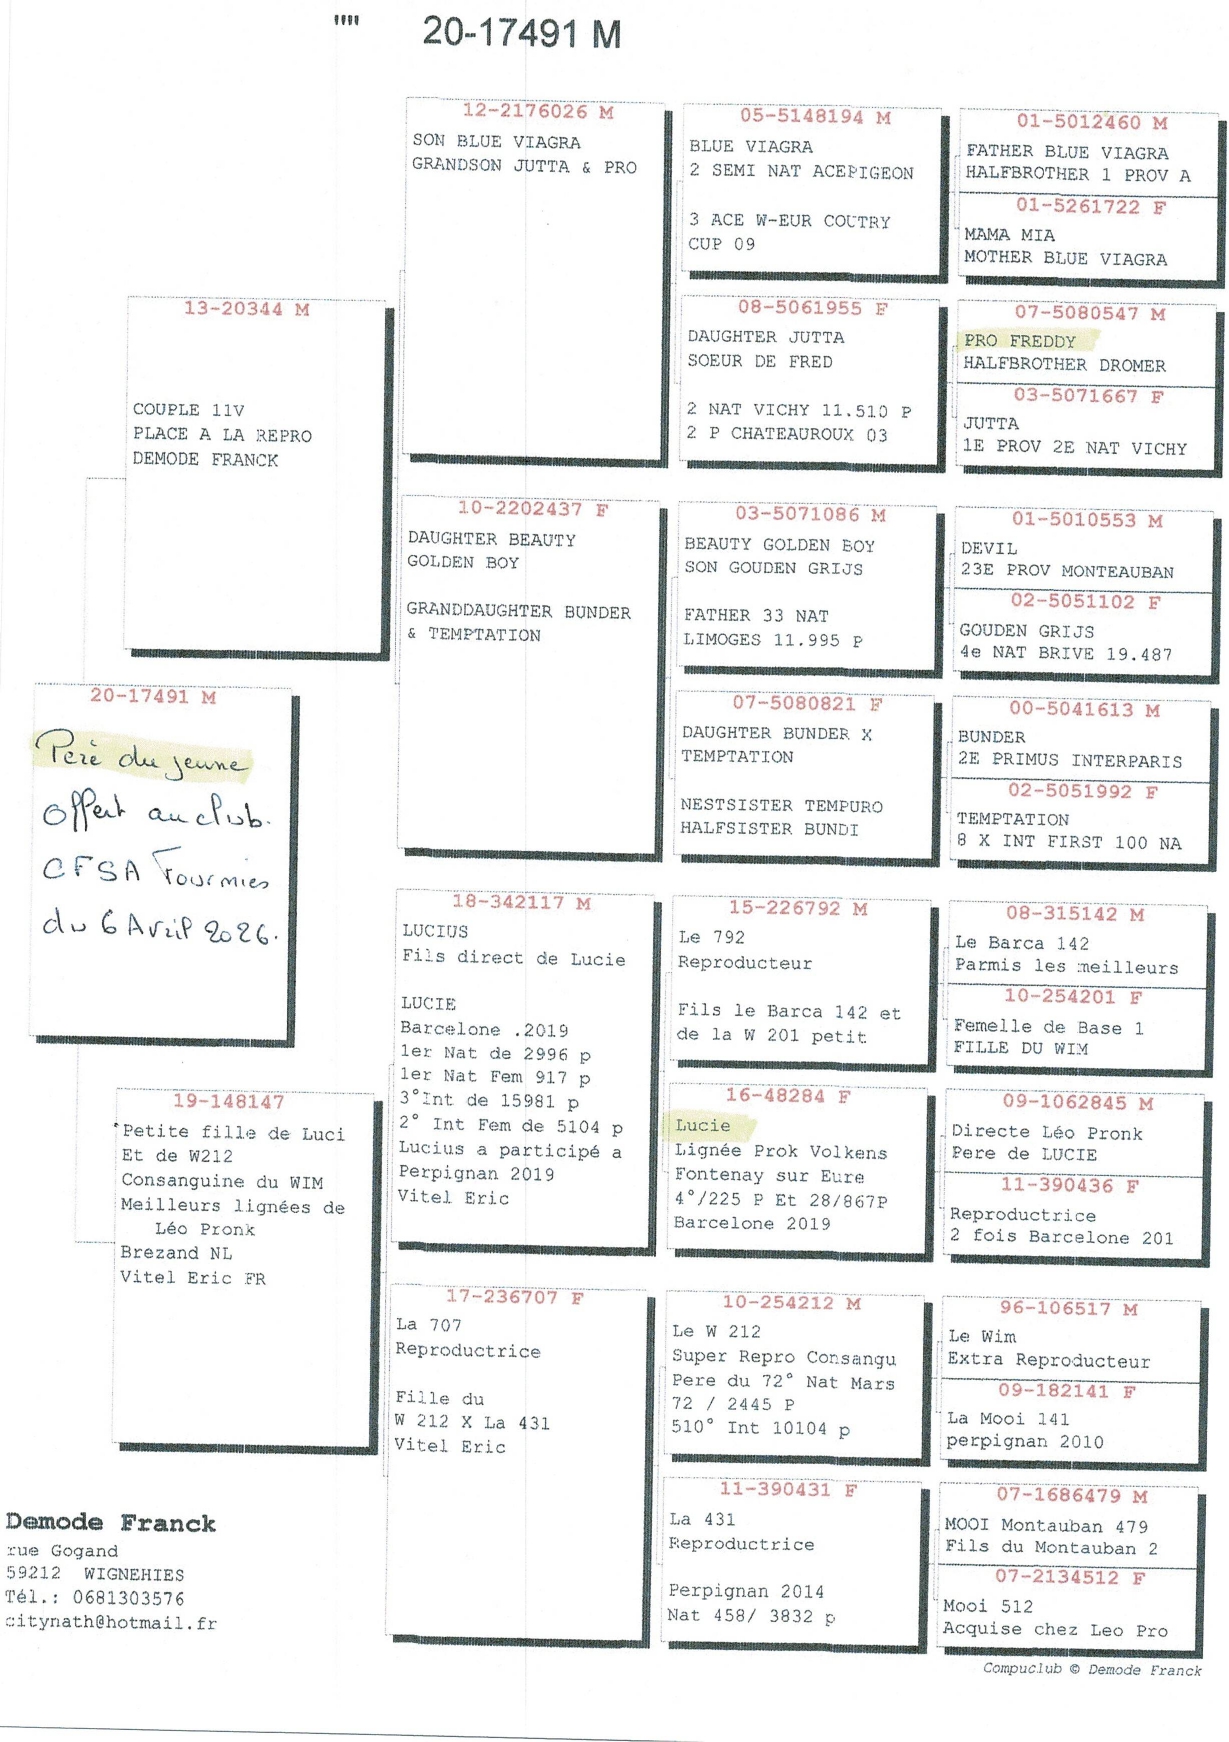 "" 20-17491 M
12-2176026 M
SON BLUE VIAGRA
GRANDSON JUTTA & PRO
05-5148194 M
BLUE VIAGRA
2 SEMI NAT ACEPIGEON
3 ACE W-EUR COUTRY
CUP 09
01-5012460 M
FATHER BLUE VIAGRA
HALFBROTHER 1 PROV A
01-5261722 F
MAMA MIA
MOTHER BLUE VIAGRA
13-20344 M
COUPLE 11V
PLACE A LA REPRO
DEMODE FRANCK
08-5061955 F
DAUGHTER JUTTA
SOEUR DE FRED
2 NAT VICHY 11.510 P
2 P CHATEAUROUX 03
07-5080547 M
PRO FREDDY
HALFBROTHER DROMER
03-5071667 F
JUTTA
1E PROV 2E NAT VICHY
10-2202437 F
DAUGHTER BEAUTY
GOLDEN BOY
GRANDDAUGHTER BUNDER
& TEMPTATION
03-5071086 M
BEAUTY GOLDEN BOY
SON GOUDEN GRIJS
FATHER 33 NAT
LIMOGES 11.995 P
01-5010553 M
DEVIL
23E PROV MONTEAUBAN
02-5051102 F
GOUDEN GRIJS
4e NAT BRIVE 19.487
07-5080821 F
DAUGHTER BUNDER X
TEMPTATION
NESTSISTER TEMPURO
HALFSISTER BUNDI
00-5041613 M
BUNDER
2E PRIMUS INTERPARIS
02-5051992 F
TEMPTATION
8 X INT FIRST 100 NA
20-17491 M
Peré du jeune
Offert au club.
CFSA Fourmies
du 6 Avril 2026.
18-342117 M
LUCIUS
Fils direct de Lucie
LUCIE
Barcelone .2019
1er Nat de 2996 p
1er Nat Fem 917 p
3°Int de 15981 p
2° Int Fem de 5104 p
Lucius a participé a
Perpignan 2019
Vitel Eric
15-226792 M
Le 792
Reproducteur
Fils le Barca 142 et
de la W 201 petit
08-315142 M
Le Barca 142
Parmis les meilleurs
10-254201 F
Femelle de Base 1
FILLE DU WIM
16-48284 F
Lucie
Lignée Prok Volkens
Fontenay sur Eure
4°/225 P Et 28/867P
Barcelone 2019
09-1062845 M
Directe Léo Pronk
Pere de LUCIE
11-390436 F
Reproductrice
2 fois Barcelone 201
19-148147
Petite fille de Luci
Et de W212
Consanguine du WIM
Meilleurs lignées de
Léo Pronk
Brezand NL
Vitel Eric FR
17-236707 F
La 707
Reproductrice
Fille du
W 212 X La 431
Vitel Eric
10-254212 M
Le W 212
Super Repro Consangu
Pere du 72° Nat Mars
72 / 2445 P
510° Int 10104 p
96-106517 M
Le Wim
Extra Reproducteur
09-182141 F
La Mooi 141
perpignan 2010
11-390431 F
La 431
Reproductrice
Perpignan 2014
Nat 458/ 3832 p
07-1686479 M
MOOI Montauban 479
Fils du Montauban 2
07-2134512 F
Mooi 512
Acquise chez Leo Pro
Demode Franck
rue Gogand
59212 WIGNEHIES
Tél.: 0681303576
citynath@hotmail.fr
Compuclub © Demode Franck